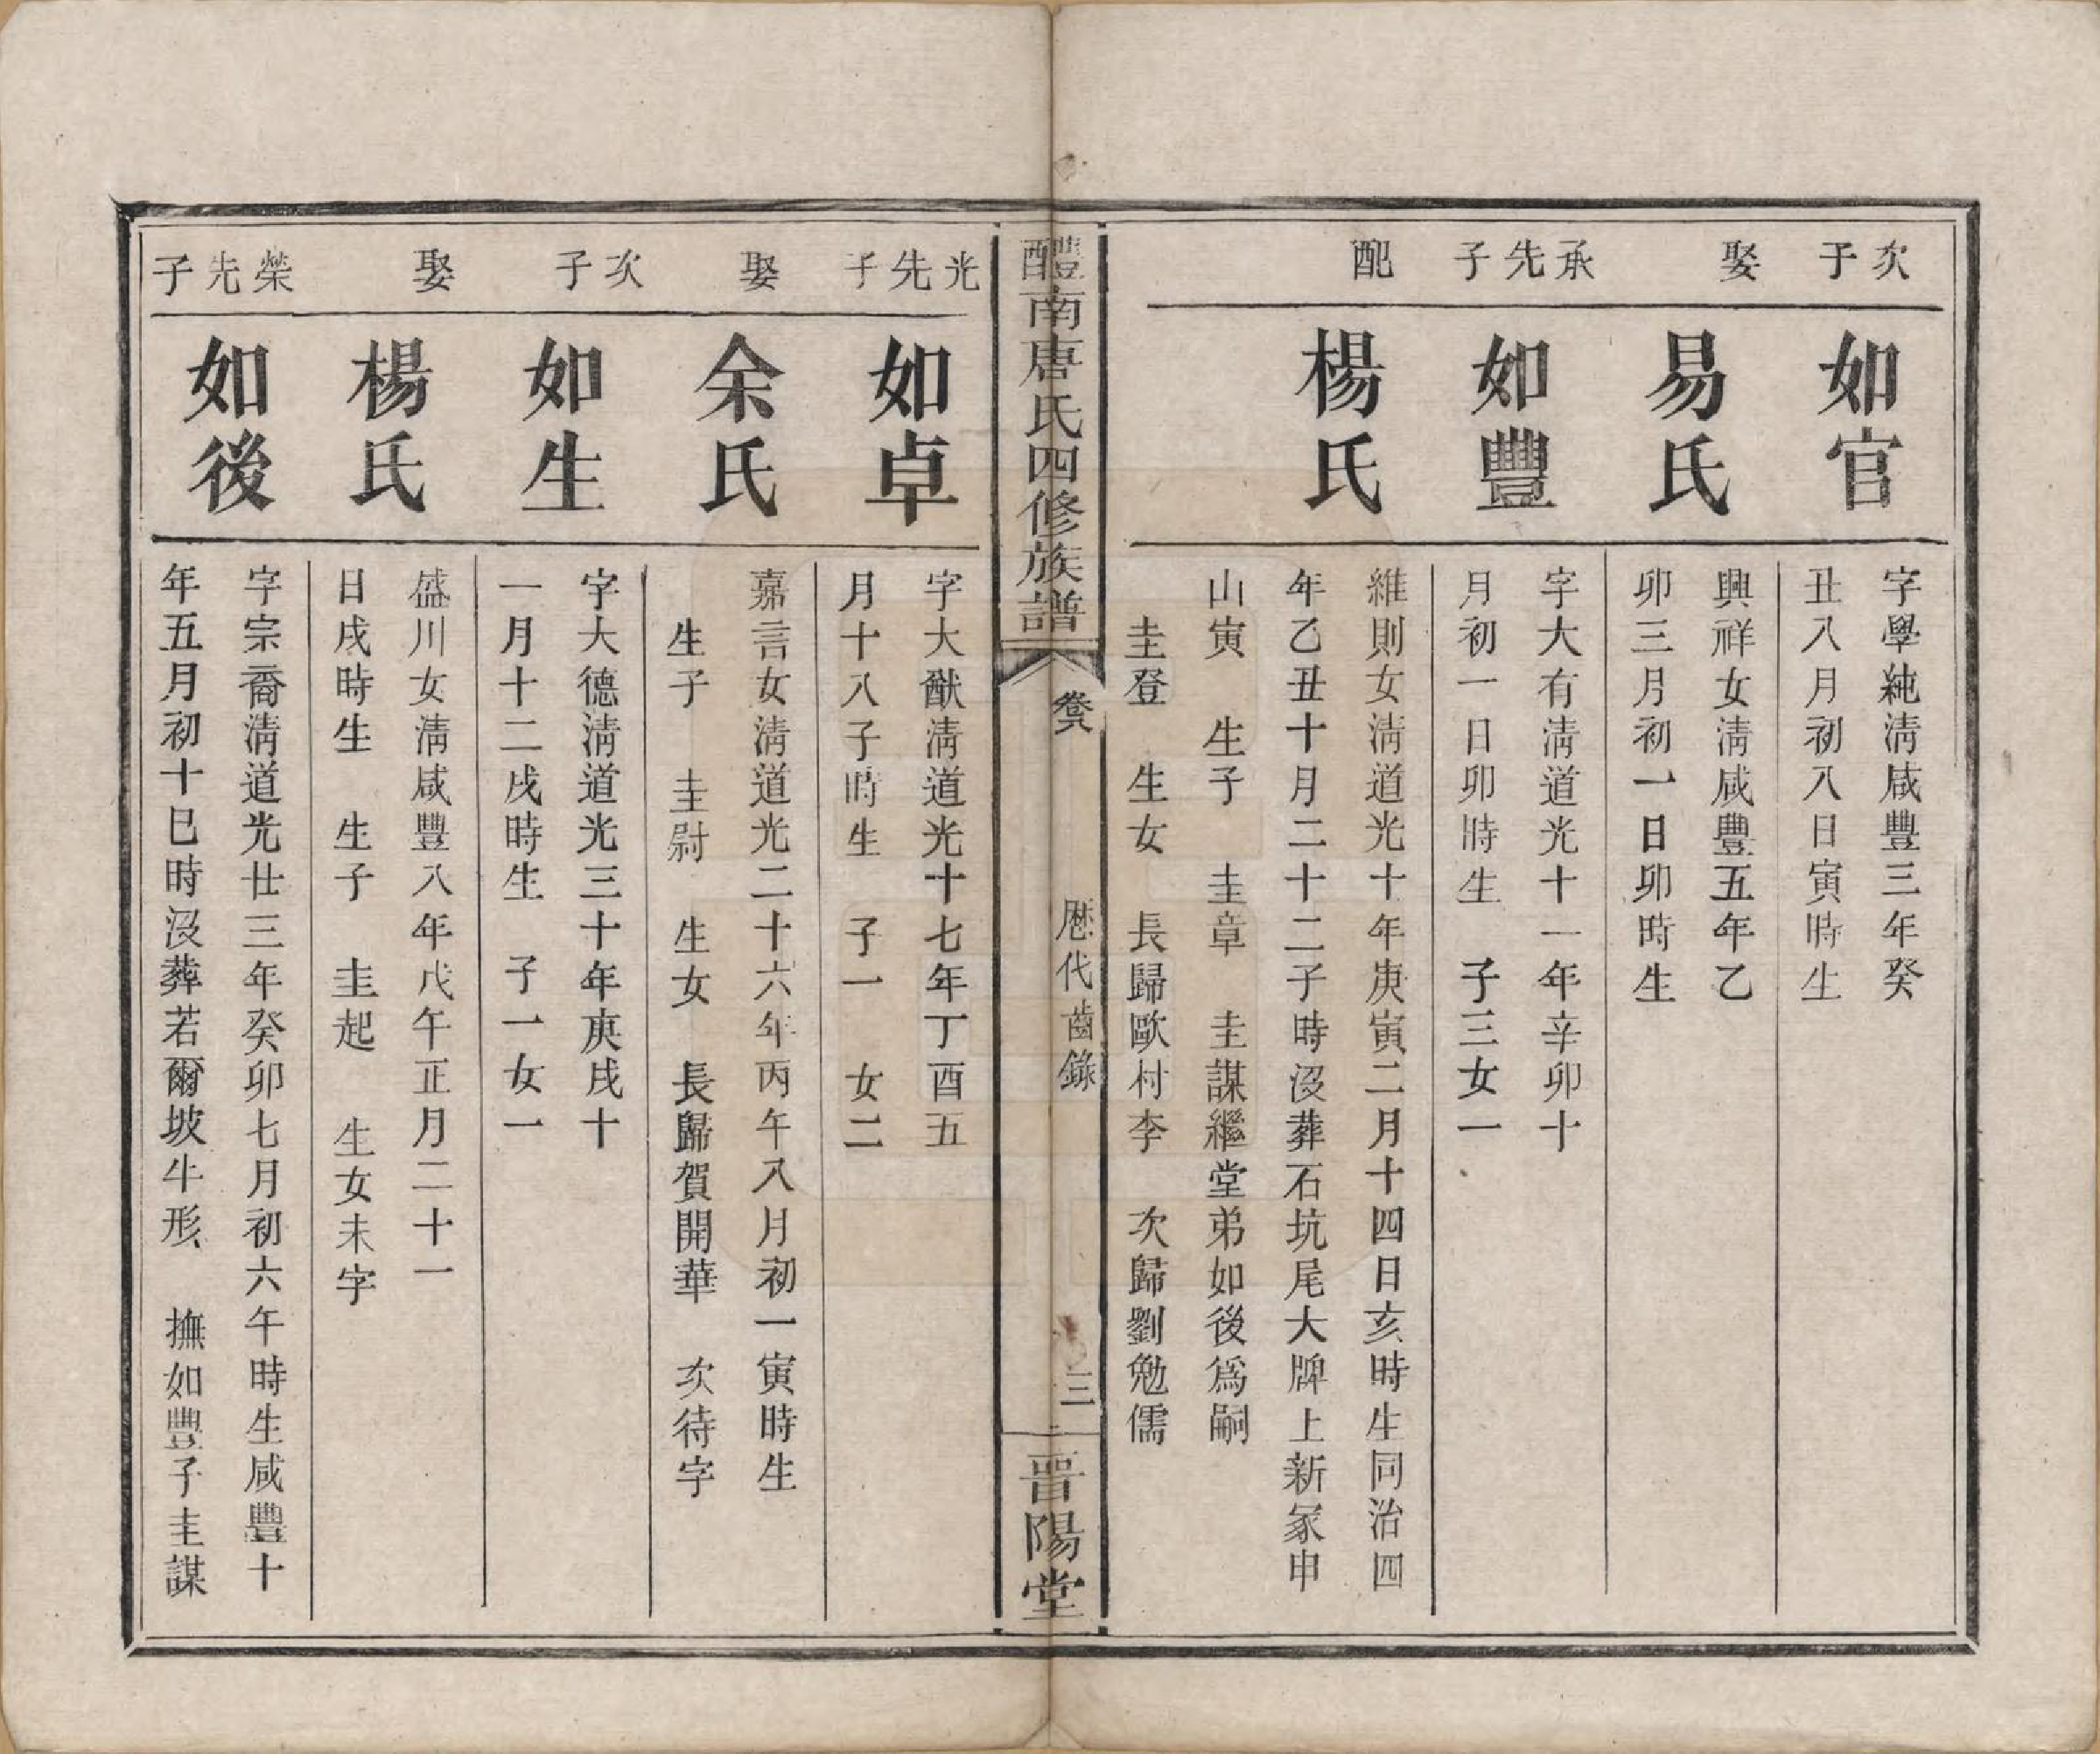 次子
如官
字學純淸咸豐三年癸
丑八月初八日寅時生
娶
易氏
興祥女淸咸豐五年乙
卯三月初一日卯時生
承先子
如豐
字大有淸道光十一年辛卯十
月初一日卯時生 子三女一
配
楊氏
維則女淸道光十年庚寅二月十四日亥時生同治四
年乙丑十月二十二子時沒葬石坑尾大牌上新冢申
山寅 生子 圭章 圭謀繼堂弟如後爲嗣
圭登 生女 長歸歐村李 次歸劉勉儒
醴南唐氏四修族譜
卷六
歷代齒錄
三
晉陽堂
光先子
如卓
字大猷淸道光十七年丁酉五
月十八子時生 子一 女二
娶
余氏
嘉言女淸道光二十六年丙午八月初一寅時生
生子 圭尉 生女 長歸賀開華 次待字
次子
如生
字大德淸道光三十年庚戌十
一月十二戌時生 子一女一
娶
楊氏
盛川女淸咸豐八年戊午正月二十一
日戌時生 生子 圭起 生女未字
榮先子
如後
字宗裔淸道光廿三年癸卯七月初六午時生咸豐十
年五月初十巳時沒葬若爾坡牛形 撫如豐子圭謀